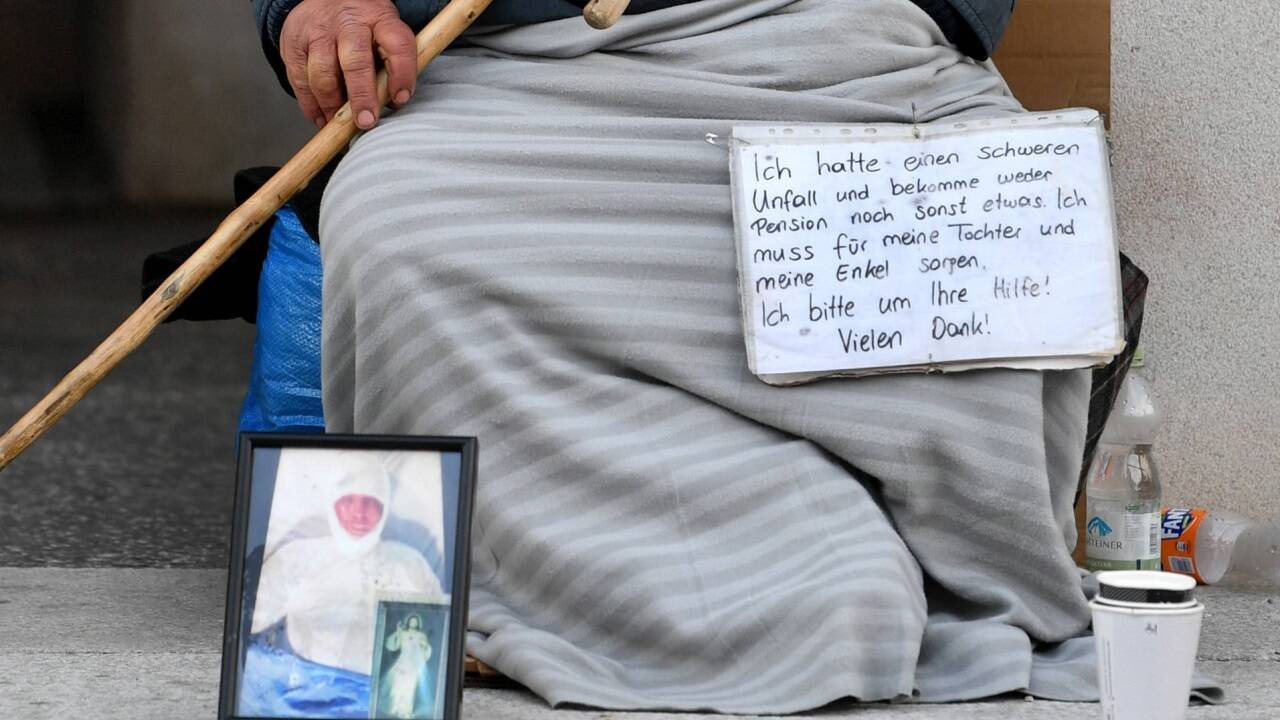 Ich hatte einen schweren
Unfall und bekomme weder
Pension noch sonst etwas. Ich
muss für meine Tochter und
meine Enkel sorgen.
Ich bitte um Ihre Hilfe!
Vielen Dank!